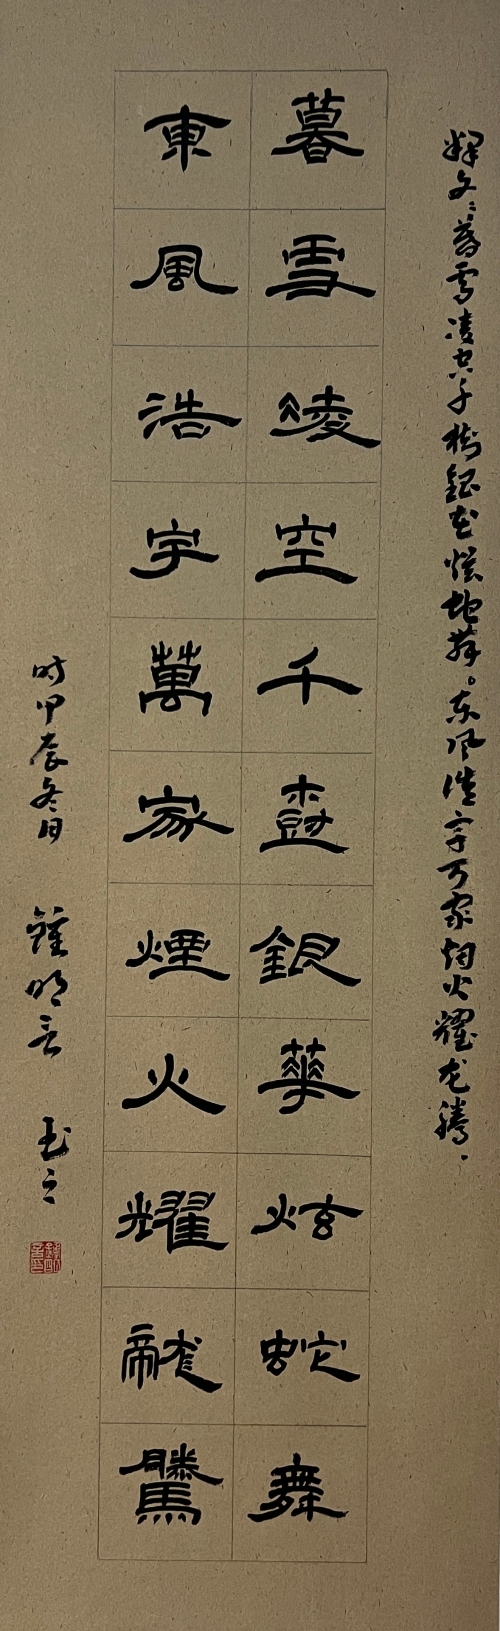 释文：暮雪凌空千树银花炫蛇舞。东风浩宇万家烟火耀龙腾。
暮雪凌空千樹銀華炫蛇舞
東風浩宇萬家煙火耀龍騰
时甲辰冬日 鍾明善 之